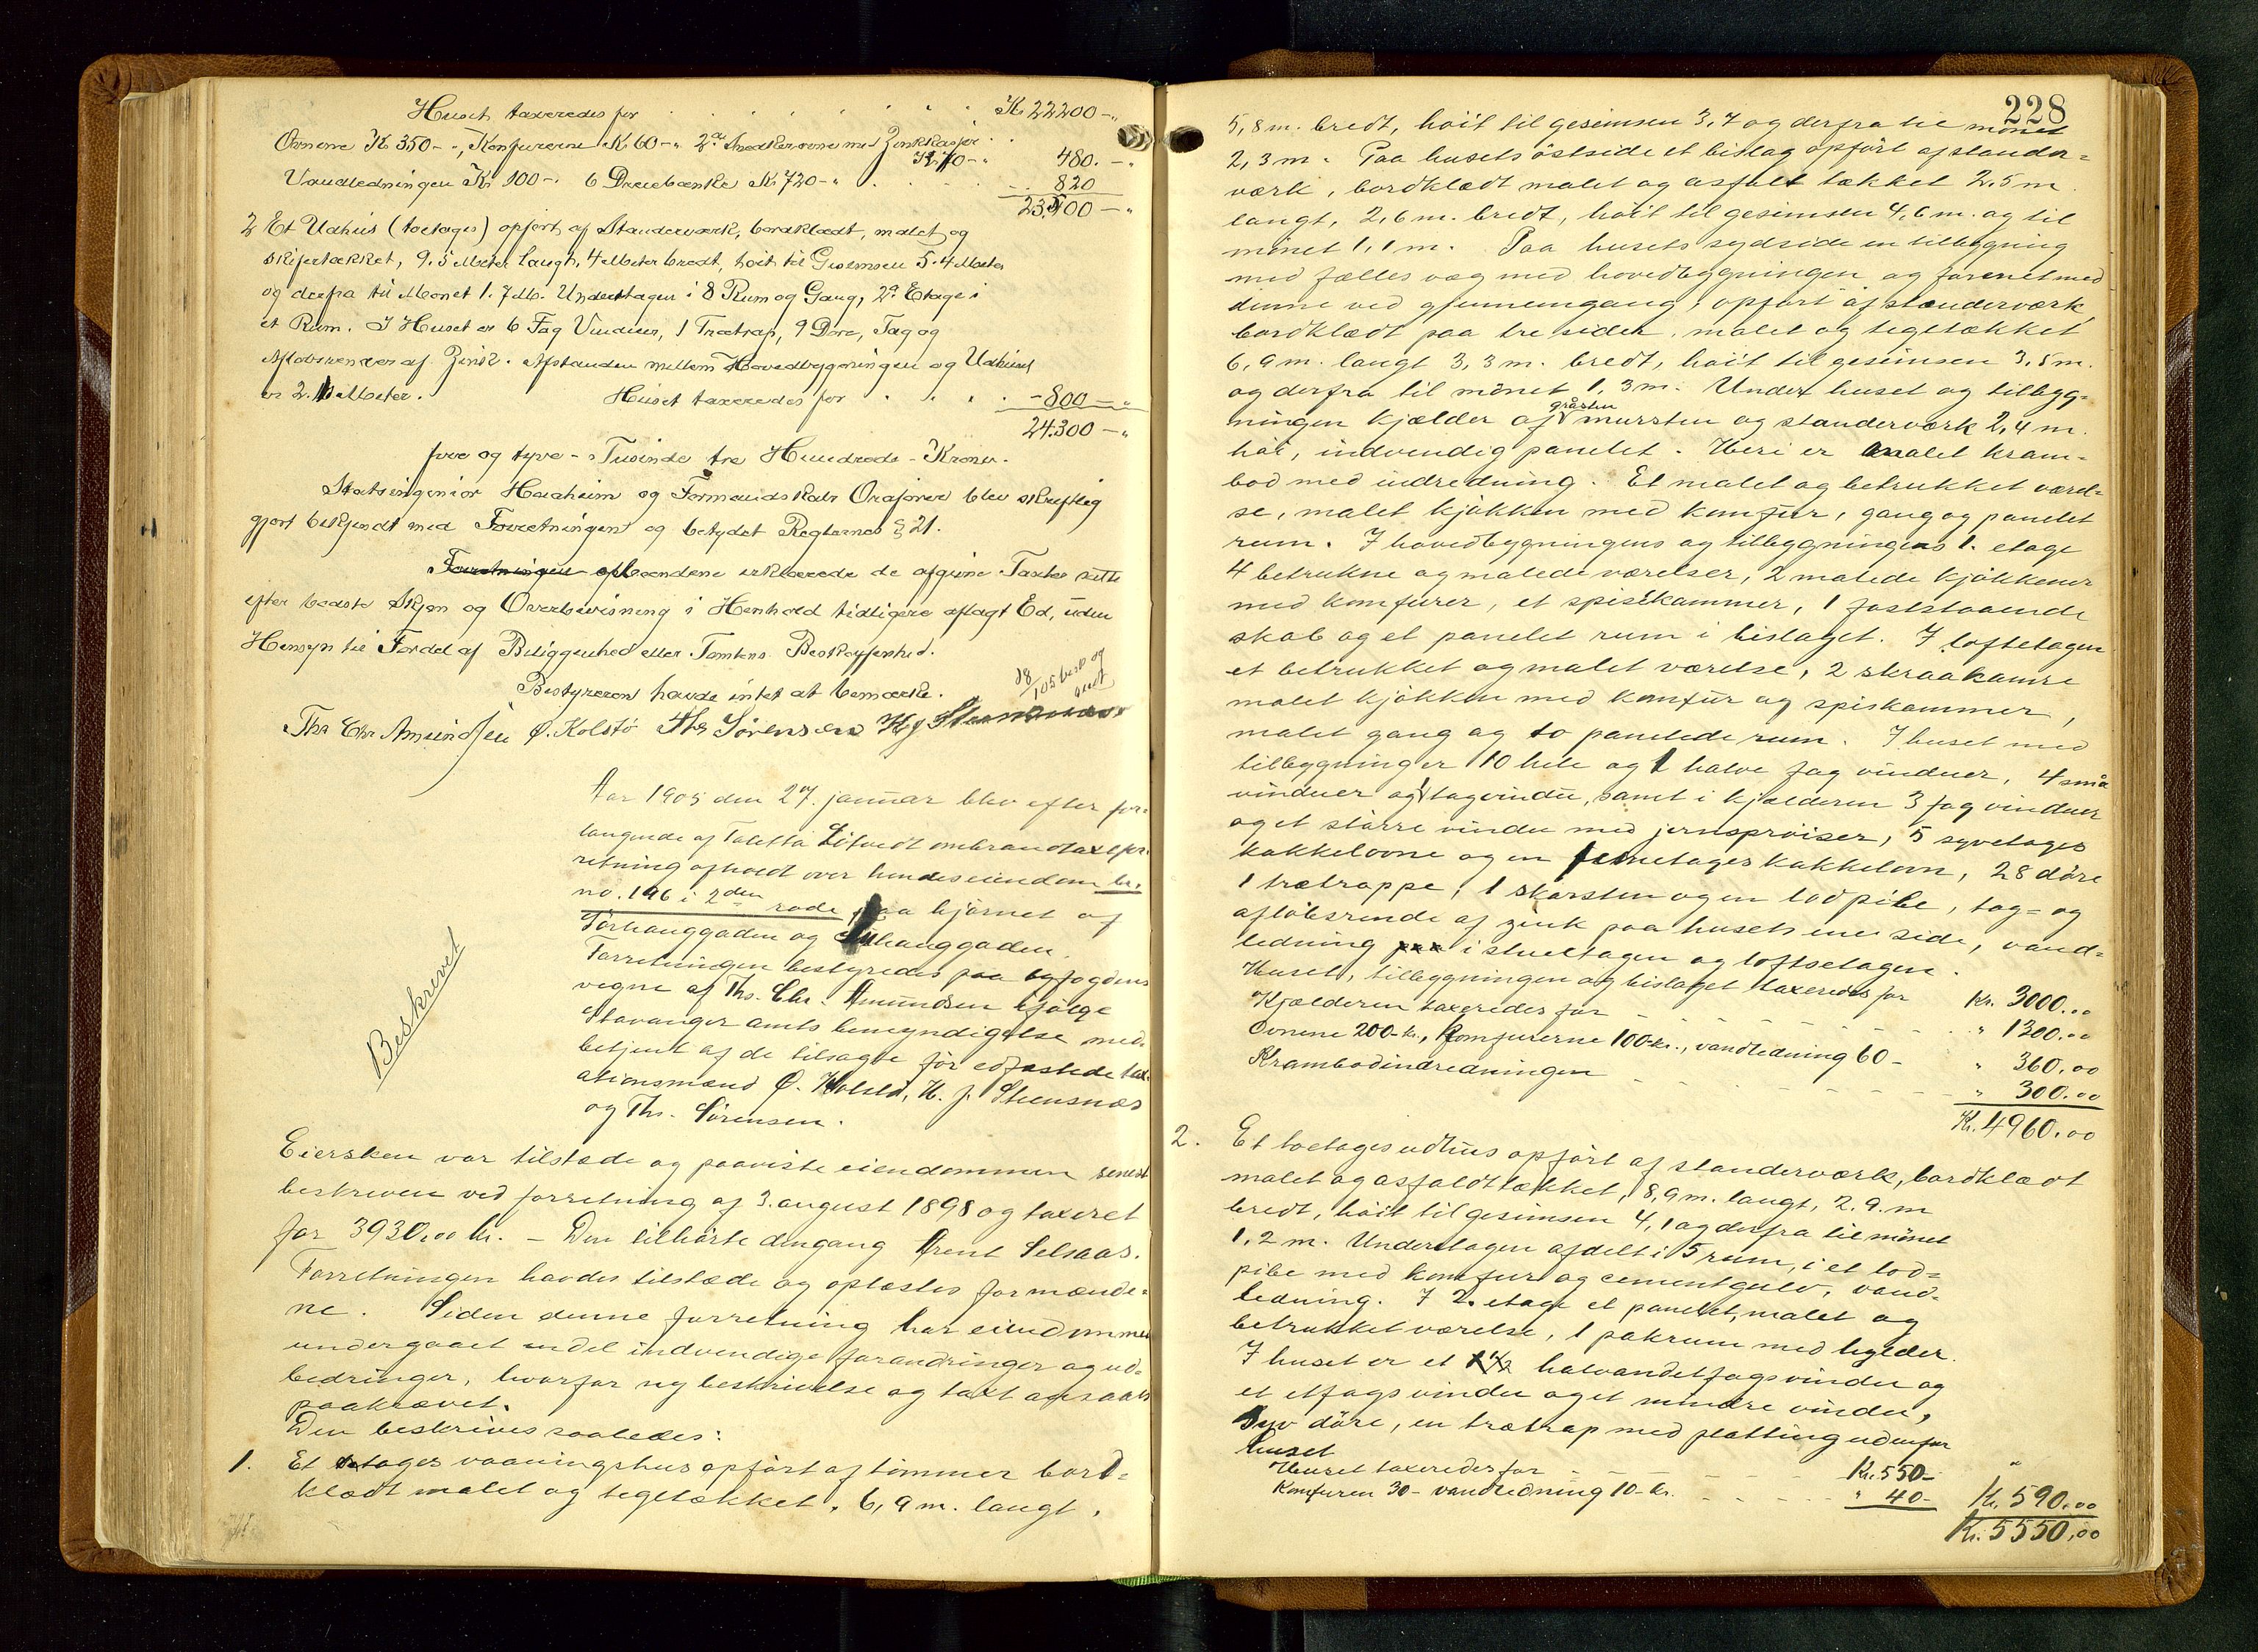 Huset taxeredes for . . . . . . . Kr 22200 -"
Ovnene Kr 350-", Konfurerne Kr 60-" 2de Andkerovne med Zinkkasser
Kr 70-" 480.-"
Vandledningen Kr 100-. 6 Dreiebænke Kr 720-" . . . . 820
23.500-"
2 Et Udhus (toetages) opført af Standerværk, bordklædt, malet og
skifertækket, 9.5 Meter langt, 4 Meter bredt, høit til Gesimsen 5.4 Meter
og derfra til Mønet 1.7 M. Underetagen i 8 Rum og Gang, 2den Etage i
et Rum. I Huset er 6 Fag Vinduer, 1 Trætrap, 9 Døre, Tag og
Afløbsrender af Zink. Afstanden mellem Hovedbygningen og Udhuset
er 2.10 Meter. Huset taxeredes for . . . . -800-"
24.300-"
fire og tyve - Tusinde tre Hundrede - Kroner.
Statsingeniør Haaheim og Formandskabs Ordfører blev skriftlig
gjort bekjendt med Forretningen og betydet Reglernes § 21.
Forretningen opløsende erklærede de afgivne Taxter satte
efter bedste Skjøn og Overbevisning i Henhold tidligere aflagt Ed, uden
Hensyn til Fordel af Beliggenhed eller Tomtens Beskaffenhed.
Bestyreren havde intet at bemærke.
Ths Chr Amundsen Ø. Kolstø Ths Sørensen H J Steensnæs
Aar 1905 den 27. januar blev efter for-
langende af Taletta Litvedt ombrandtaxtfor-
retning afholdt over hendes eiendom br.
no. 196 i 2den rode paa hjørnet af
Torhauggaden og
Forretningen bestyredes paa byfogdens
vegne af Ths. Chr. Amundsen ifølge
Stavanger amts bemyndigelse med-
betjent af de tilsagte før edfæstede tax-
ationsmænd Ø. Kolstø, H. J. Steensnæs
og Ths. Sørensen.
Beskrevet
Eiersken var tilstede og paaviste eiendommen senest
beskreven ved forretning af 3. august 1898 og taxeret
for 3930,00 kr. - Den tilhørte dengang Arent Selsaas.
Forretningen havdes tilstæde og oplæstes for mænde-
ne. Siden denne forretning har eiendommen
undergaaet endel indvendige forandringer og ud-
bedringer, hvorfor ny beskrivelse og taxt ansaaes
paakrævet.
Den beskrives saaledes:
1. Et etages vaaningshus opført af tømmer bord-
klædt malet og tegltækket, 6,9 m. langt,
228
5,8 m. bredt, høit til gesimsen 3,7 og derfra til mønet
2,3 m. Paa husets østside et bislag opført af stander-
værk, bordklædt malet og asfalt tækket 2,5 m.
langt, 2,6 m. bredt, høit til gesimsen 4,6 m. og til
mønet 1,1 m. Paa husets sydside en tilbygning
med fælles væg med hovedbygningen og forenet med
denne ved gjennemgang, opført af standerværk
bordklædt paa tre sider, malet og tegltækket
6,9 m. langt 3,3 m. bredt, høit til gesimsen 3,5 m.
og derfra til mønet 1,3 m. Under huset og tilbyg-
ningen kjælder af gråsten mursten og standerværk 2,4 m.
høi, indvendig panelet. Heri er malet kram-
bod med indredning. Et malet og betrukket værel-
se, malet kjøkken med komfur, gang og panelet
rum. I hovedbygningens og tilbygningens 1. etage
4 betrukne og malede værelser, 2 malede kjøkkener
med komfurer, et spiskammer, 1 faststaaende
skab og et panelet rum i bislaget. I loftetagen
et betrukket og malet værelse, 2 skraakamre
malet kjøkken med komfur og spiskammer,
malet gang og to panelede rum. I huset med
tilbygning er 10 hele og 1 halve fag vinduer, 4 små
vinduer og 1 tagvindu, samt i kjælderen 3 fag vinduer
og et større vindu med jernsprøiser, 5 syvetages
kakkelovne og en femetages kakkelovn, 28 døre
1 trætrappe, 1 skorsten og en lodpibe, tag- og
afløbsrende af zink paa husets ene side, vand-
ledning i stueetagen og loftsetagen.
Huset, tilbygningen og bislaget taxeredes for Kr. 3000.00
Kjælderen taxeredes for - - - - - - - " 1300.00
Ovnene 200-kr., komfurerne 100-kr., vandledning 60- " 360.00
Krambodindredningen - - - - - - - " 300.00
Kr. 4960.00
2. Et toetages udhus opført af standerværk, bordklædt
malet og asfaldttækket, 8,9 m. langt, 2.9. m
bredt, høit til gesimsen 4,1 og derfra til mønet
1.2 m. Underetagen afdelt i 5 rum, i et lod-
pibe med komfur og cementgulv, vand-
ledning. I 2. etage et panelet, malet og
betrukket værelse, 1 pakrum med hylder.
I huset er et halvandetfagsvindu og
et etfagsvindu og et mindre vindu,
Syv døre, en trætrap med platting udenfor
huset
Huset taxeredes for - - - - - Kr. 550-
Komfuren 30- vandledning 10-kr. - - - " 40- Kr. 590.00
Kr. 5550,00